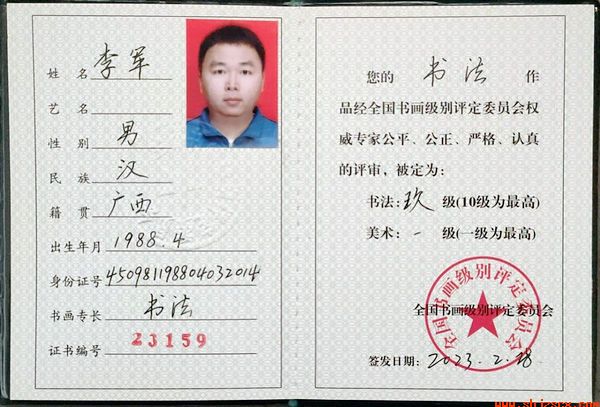 姓名 李军
艺名
性别 男
民族 汉
籍贯 广西
出生年月 1988.4
身份证号 450981198804032014
书画专长 书法
证书编号 23159
您的 书法 作
品经全国书画级别评定委员会权
威专家公平、公正、严格、认真
的评审，被定为：
书法：玖 级(10级为最高)
美术：一 级(一级为最高)
全国书画级别评定委员会
全国书画级别评定委员会
签发日期：2023.2.28